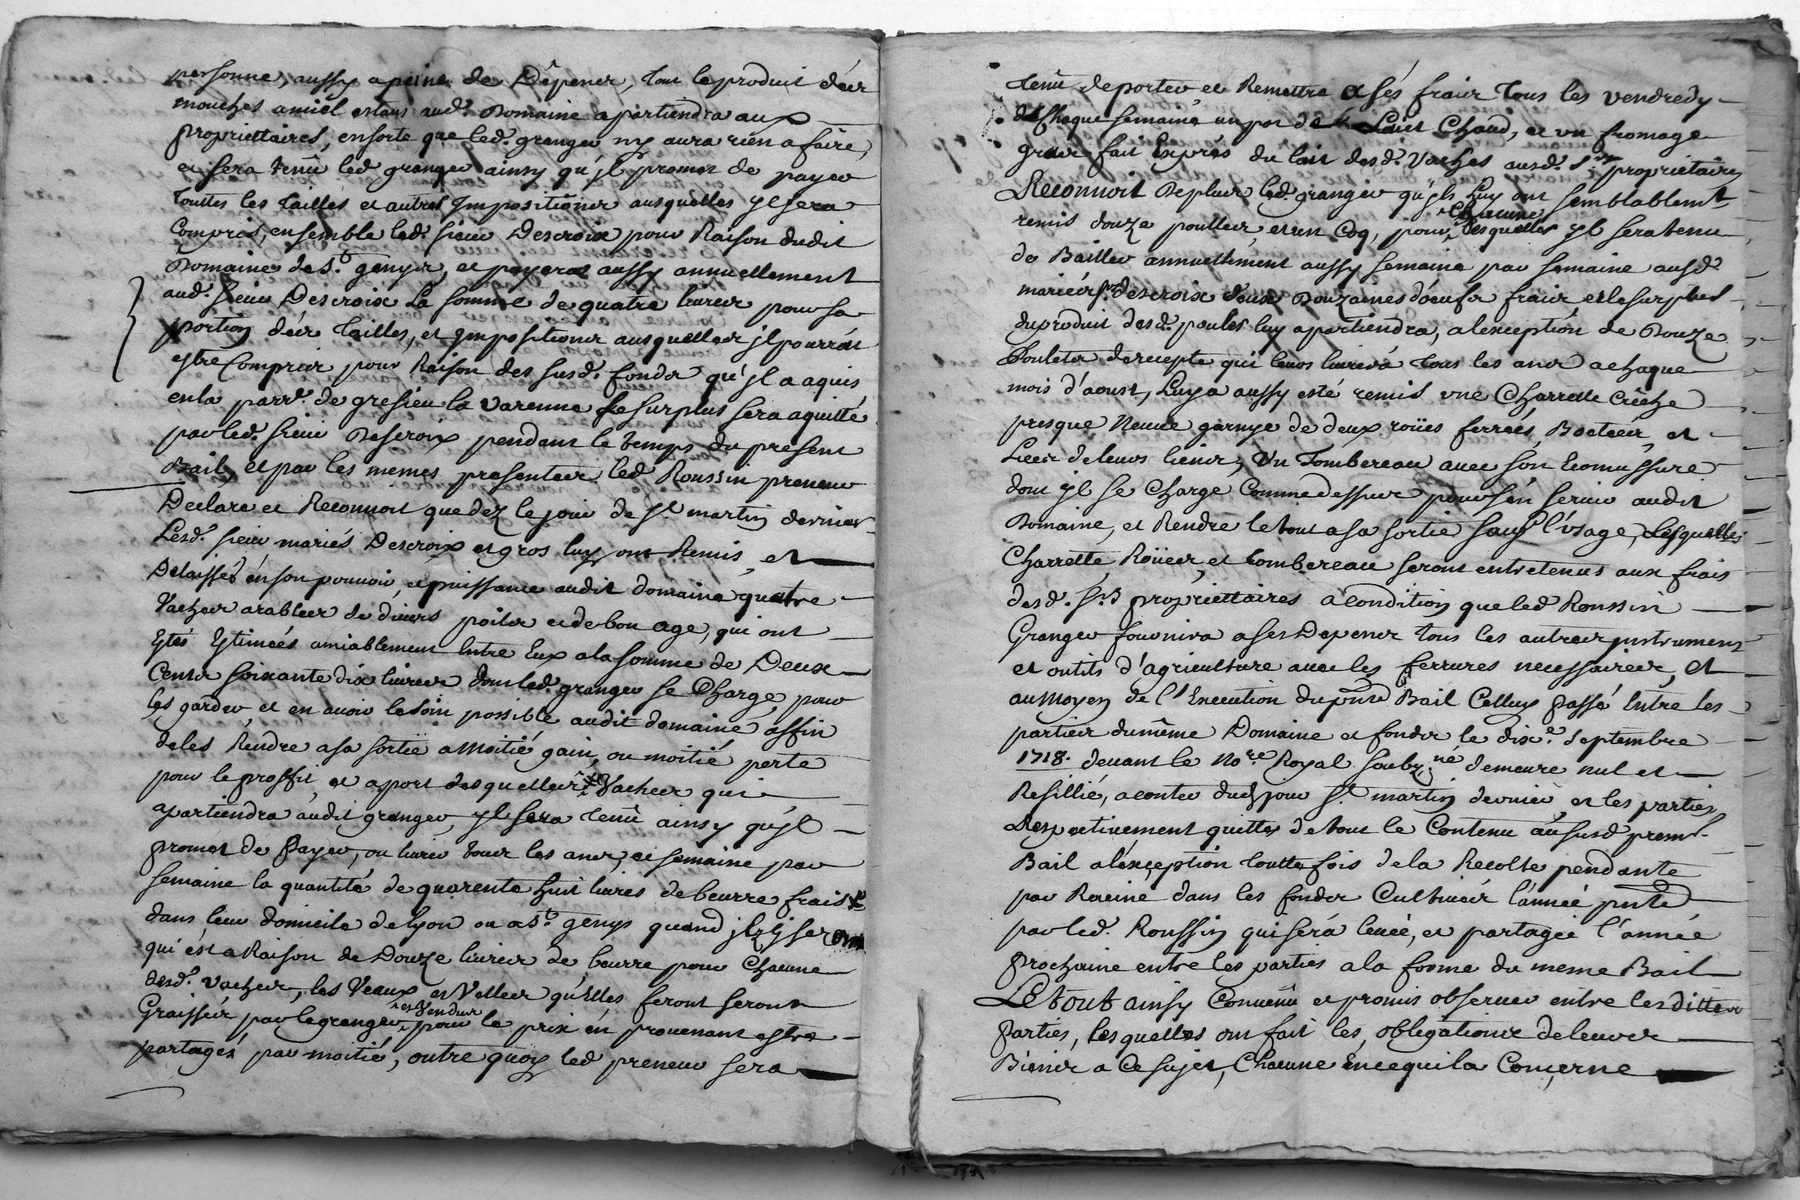 personne, aussy a peine de Dépener, tout le produit dées
mouches a miél estans aud.t Domaine apartiendra aux
proprietaires, ensorte que led. granger ny aura rien a faire,
et sera tenû led granger ainsy qu'jl promet de payer
touttes les tailles et autres Jmpositions ausquelles yl sera
Compris, ensemble led. sieur Descroix pour Raison dudit
Domaine de S.t genys, et payera aussy annuellement
aud. sieur Descroix La somme de quatre livres pour sa
portion dées tailles, et jmpositions ausquelles jl pourroit
estre Compris pour Raison des susd. fonds qu'jl a aquis
en la parr.e de gresieu la varenne le surplus sera aquitté
par led. sieur Descroix pendant le temps du present
Bail, et par les memes presentes led. Roussin preneur
Declare et Reconnoit que dez le jour de S.t martin dernier
Lesd. sieur mariés Descroix et gros luy ont Remis, et
Delaissés en son pouvoir, et puissance audit domaine quatre
Vaches arables de divers poils et de bon age, qui ont
Estés Estimées amiablement Entre Eux a la somme de Deux
Cents soixante dix livres dont led. granger se Charge, pour
les garder et en avoir le soin possible audit domaine affin
de les Rendre a sa sortie a moitié gain, ou moitié perte
pour le proffit, et aport desquelles Vaches qui
apartiendra audit granger, yl sera tenû ainsy qu'jl
promet de payer, ou livrer tous les ans, et semaine par
semaine la quantité de quarente huit livres de beurre frais
dans leur domicile de Lyon ou a S.t genys quand jlz y seront
qui est a Raison de Douze livres de beurre pour Chacune
desd. vaches, les Veaux et Velles qu'Elles feront seront
Graissés par le granger, et Vendus pour le prix en provenant estre
partagés par moitié, outre quoy led preneur sera
tenû de porter et Remettre a sés frais tous les vendredy
de Chaque semaine un pot de Lait Chaud, et un fromage
gras fait Exprés du lait desd. Vaches ausd. S.rs proprietaires
Reconnoit De plus led. granger qu'jls Luy ont semblablem.t
remis douze poulles, et un Coq, pour Chacune desquelles yl sera tenu
de Bailler annuellement aussy semaine par semaine ausd.
mariés S.r descroix deux Douzaines d'oeufs frais et le surplus
du produit desd. poules luy apartiendra, a l'exception de Douze
Poulets de recepte qui leurs livrera tous les ans a chaque
mois d'aoust, Luy a aussy esté remis une Charrette Crêche
presque Neuve garnye de deux roües ferrées, Boetées, et
Liées de leurs liens, Un Tombereau avec son Ecomussure
dont yl se Charge Comme dessus pour s'en servir audit
Domaine, et Rendre le tout a sa sortie sauf l'Usage, Lesquelles
Charrette, Roües, et tombereau seront entretenus aux frais
desd. S.rs proprietaires a condition que led Roussin
Granger fournira a ses Depens tous les autres jnstrumens
et outils d'agriculture avec les ferrures necessaires, et
au moyen de l'Execution du pnt Bail Celluy passé Entre les
parties du même Domaine et fonds le dix.e Septembre
1718. devant le No.re Royal soubz.né demeure nul et
Resillié, a conter dud jour S.t martin dernier, et les parties
Respectivement quittes de tout le Contenu au susd prem.r
Bail a l'exception touttefois de la Recolte pendante
par Racine dans les fonds Cultivés l'année pnte
par led. Roussin qui será levée, et partagée l'année
prochaine entre les parties a la forme du meme Bail
Le tout ainsy Convenu et promis observer entre lesdittes
parties, Lesquelles ont fait les obligations de leurs
Biens a Ce sujet, Chacune En ce qui la Concerne